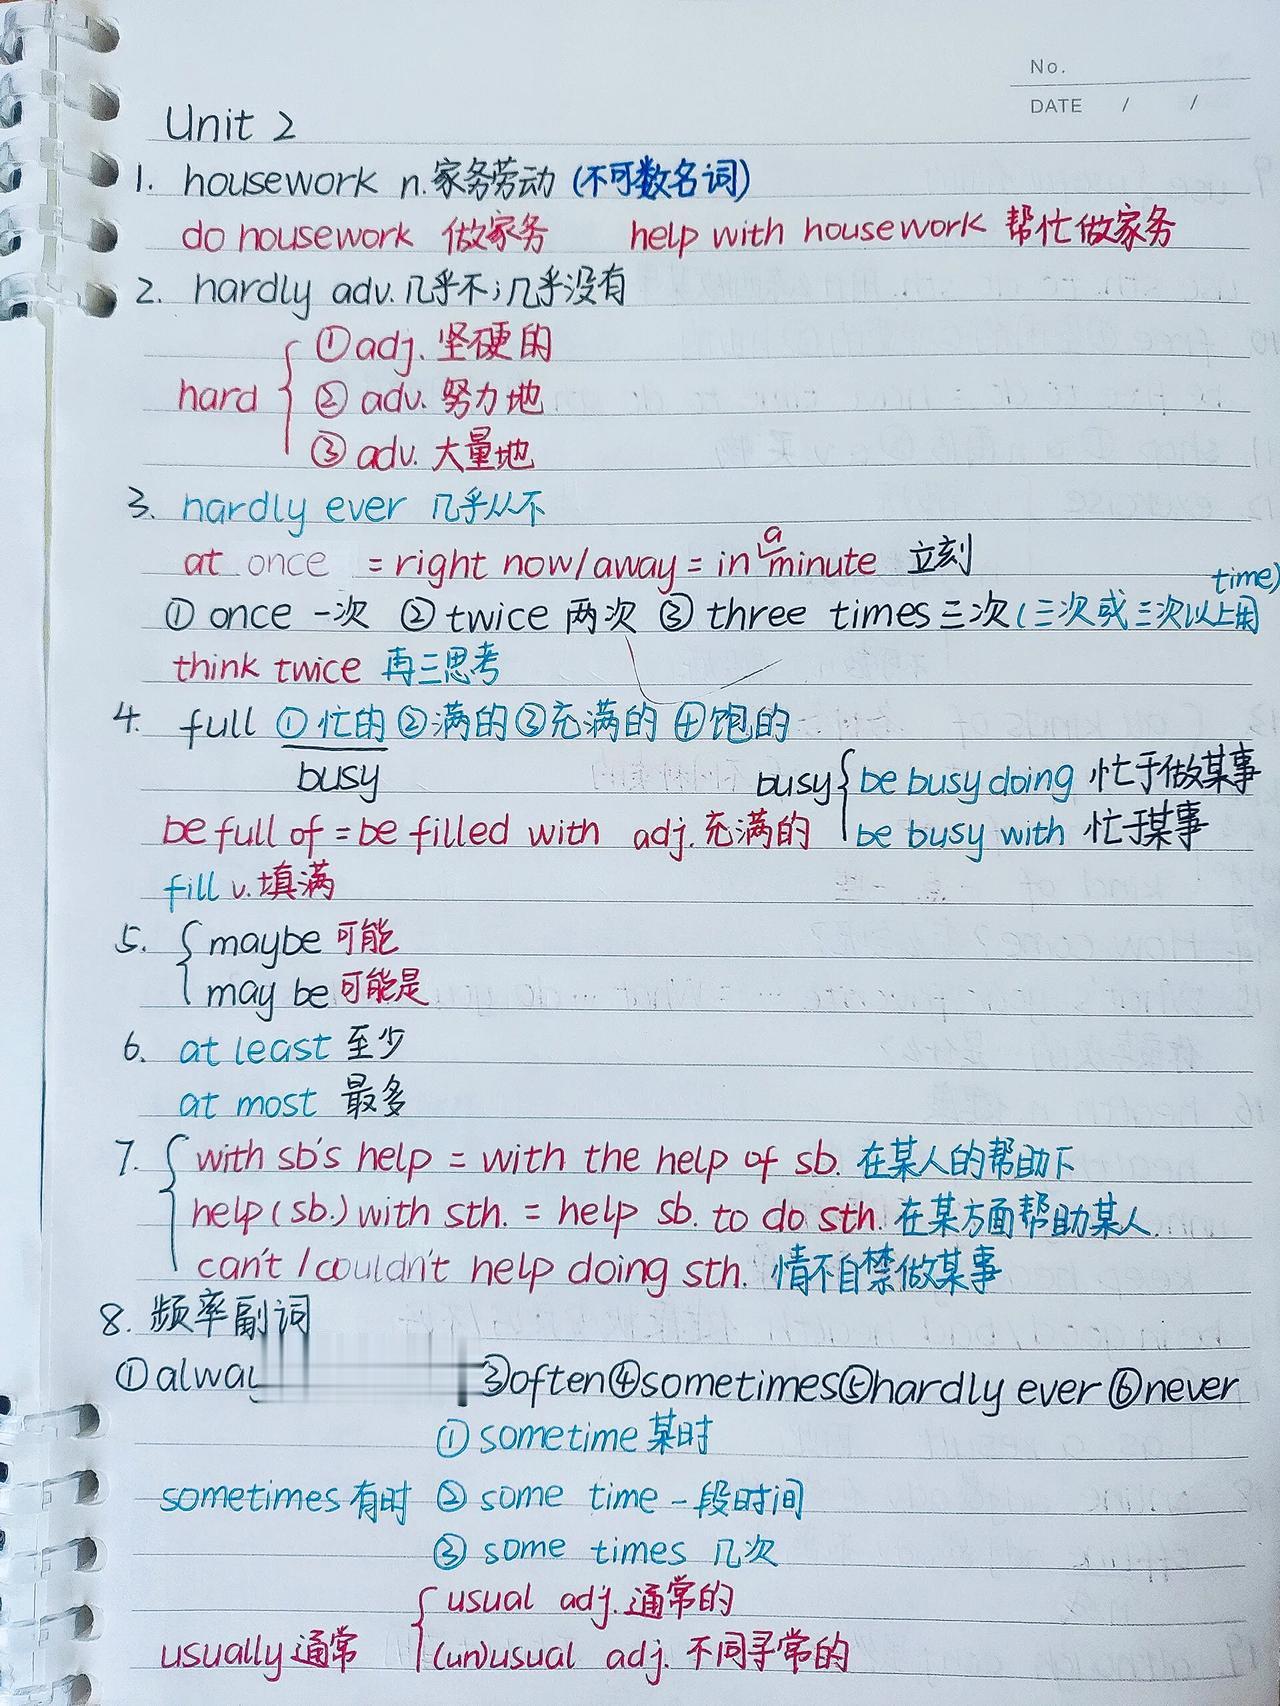 No.
DATE / /
Unit 2
1. housework n.家务劳动 (不可数名词)
do housework 做家务 help with housework 帮忙做家务
2. hardly adv.几乎不;几乎没有
①adj. 坚硬的
hard { ② adv. 努力地
③ adv. 大量地
3. hardly ever 几乎从不
at once = right now/away = in a minute 立刻
time)
① once 一次 ② twice 两次 ③ three times 三次(三次或三次以上用
think twice 再三思考
4. full ①忙的②满的③充满的④饱的
busy busy { be busy doing 忙于做某事
be full of = be filled with adj.充满的 be busy with 忙于某事
fill v.填满
5. { maybe 可能
may be 可能是
6. at least 至少
at most 最多
7. { with sb's help = with the help of sb. 在某人的帮助下
help (sb.) with sth. = help sb. to do sth. 在某方面帮助某人
can't / couldn't help doing sth. 情不自禁做某事
8. 频率副词
① ③often④sometimes⑤hardly ever ⑥never
① sometime 某时
sometimes 有时 ② some time 一段时间
③ some times 几次
{ usual adj.通常的
usually 通常 (un)usual adj. 不同寻常的